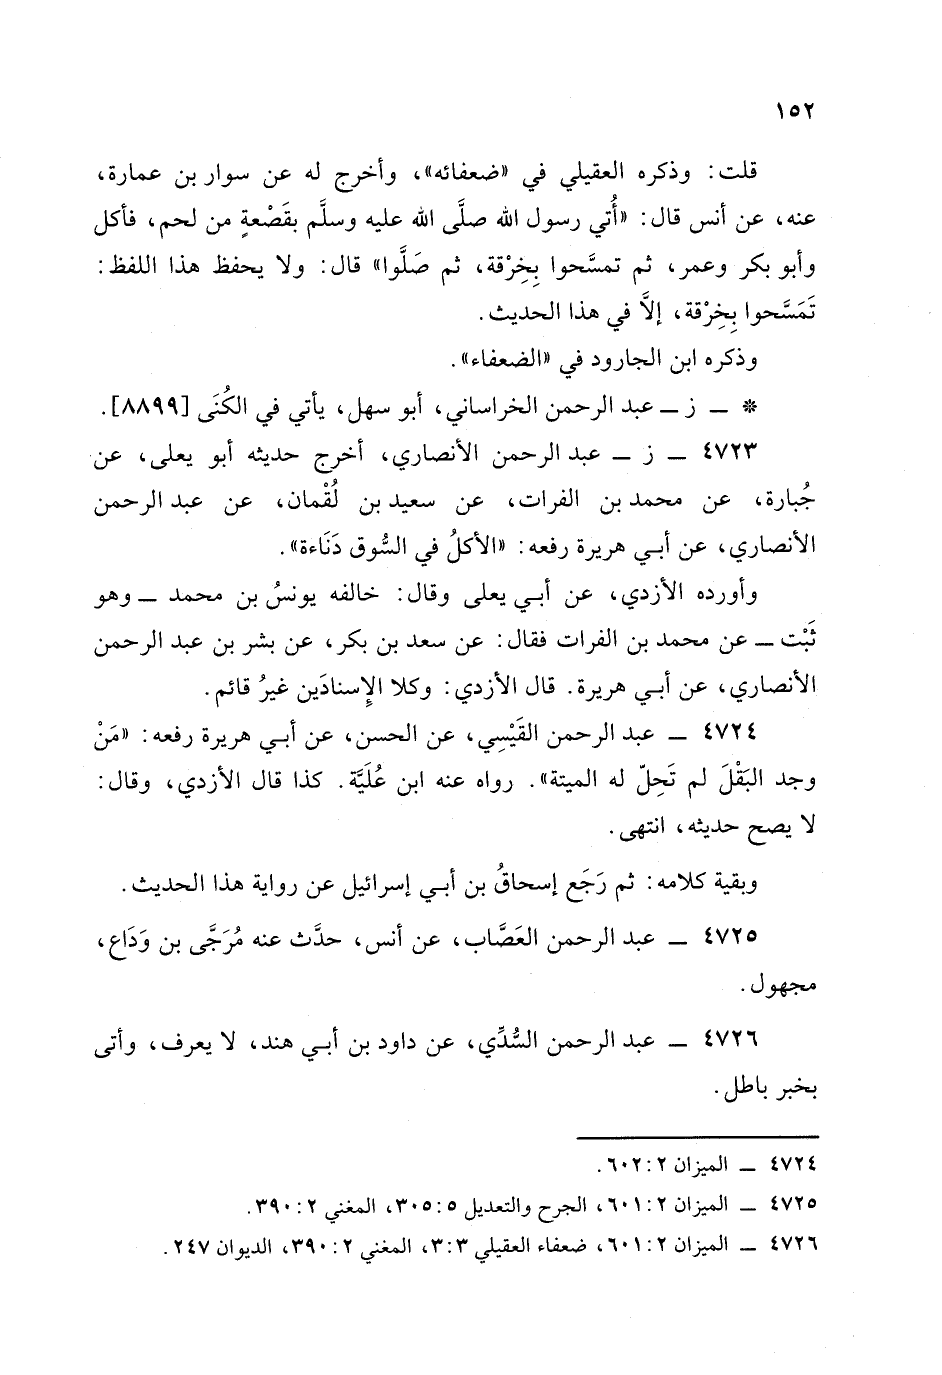 ١٥٢
قلت: وذكره العقيلي في «ضعفائه»، وأخرج له عن سوار بن عمارة،
عنه، عن أنس قال: «أُتي رسول الله صلَّى الله عليه وسلَّم بقَصْعةٍ من لحم، فأكل
وأبو بكر وعمر، ثم تمسَّحوا بِخِرْقة، ثم صَلَّوا» قال: ولا يحفظ هذا اللفظ:
تَمَسَّحوا بِخِرْقة، إلاَّ في هذا الحديث.
وذكره ابن الجارود في «الضعفاء».
* ــ ز ــ عبد الرحمن الخراساني، أبو سهل، يأتي في الكُنَى [٨٨٩٩].
٤٧٢٣ ــ ز ــ عبد الرحمن الأنصاري، أخرج حديثه أبو يعلى، عن
جُبارة، عن محمد بن الفرات، عن سعيد بن لُقْمان، عن عبد الرحمن
الأنصاري، عن أبـي هريرة رفعه: «الأكلُ في السُّوق دَنَاءة».
وأورده الأزدي، عن أبـي يعلى وقال: خالفه يونسُ بن محمد ــ وهو
ثَبْت ــ عن محمد بن الفرات فقال: عن سعد بن بكر، عن بشر بن عبد الرحمن
الأنصاري، عن أبـي هريرة. قال الأزدي: وكلا الإِسنادَين غيرُ قائم.
٤٧٢٤ ــ عبد الرحمن القَيْسِي، عن الحسن، عن أبـي هريرة رفعه: «مَنْ
وجد البَقْلَ لم تَحِلّ له الميتة». رواه عنه ابن عُلَيَّة. كذا قال الأزدي، وقال:
لا يصح حديثه، انتهى.
وبقية كلامه: ثم رَجَع إسحاقُ بن أبـي إسرائيل عن رواية هذا الحديث.
٤٧٢٥ ــ عبد الرحمن العَصَّاب، عن أنس، حدَّث عنه مُرَجَّى بن وَدَاع،
مجهول.
٤٧٢٦ ــ عبد الرحمن السُّدِّي، عن داود بن أبـي هند، لا يعرف، وأتى
بخبر باطل.
٤٧٢٤ ــ الميزان ٢: ٦٠٢.
٤٧٢٥ ــ الميزان ٢: ٦٠١، الجرح والتعديل ٥: ٣٠٥، المغني ٢: ٣٩٠.
٤٧٢٦ ــ الميزان ٢: ٦٠١، ضعفاء العقيلي ٣: ٣، المغني ٢: ٣٩٠، الديوان ٢٤٧.